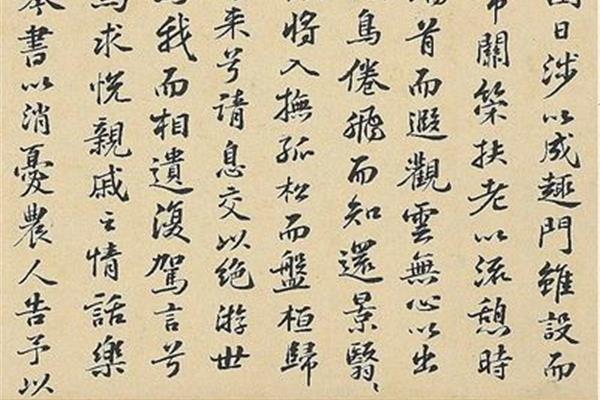 園日涉以成趣門雖設而
常關策扶老以流憩時
首而遐觀雲無心以出
鳥倦飛而知還景翳〻
將入撫孤松而盤桓歸
来兮請息交以絶游世
我而相遺復駕言兮
焉求悅親戚之情話樂
琴書以消憂農人告予以